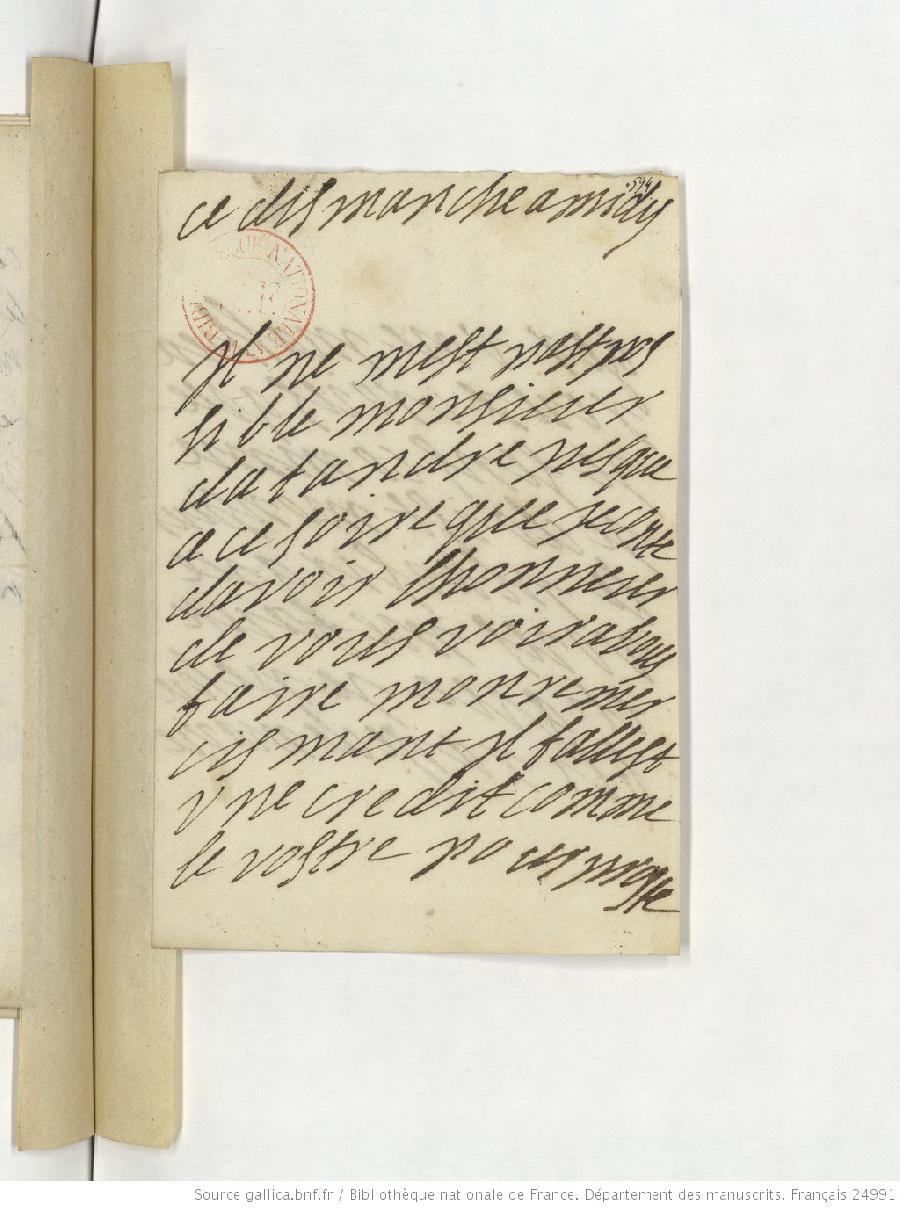 594
ce dismanche a midy
BIBLIOTHEQUE NATIONALE
Il ne mest past pos
sible monsieur
datandre jesque
a ce soire que je conte
davoir lhonneur
de vous voir a vous
faire mon remer
cismant il falloit
vne credit comme
le vostre pour
Source gallica.bnf.fr / Bibliothèque nationale de France. Département des manuscrits. Français 24991